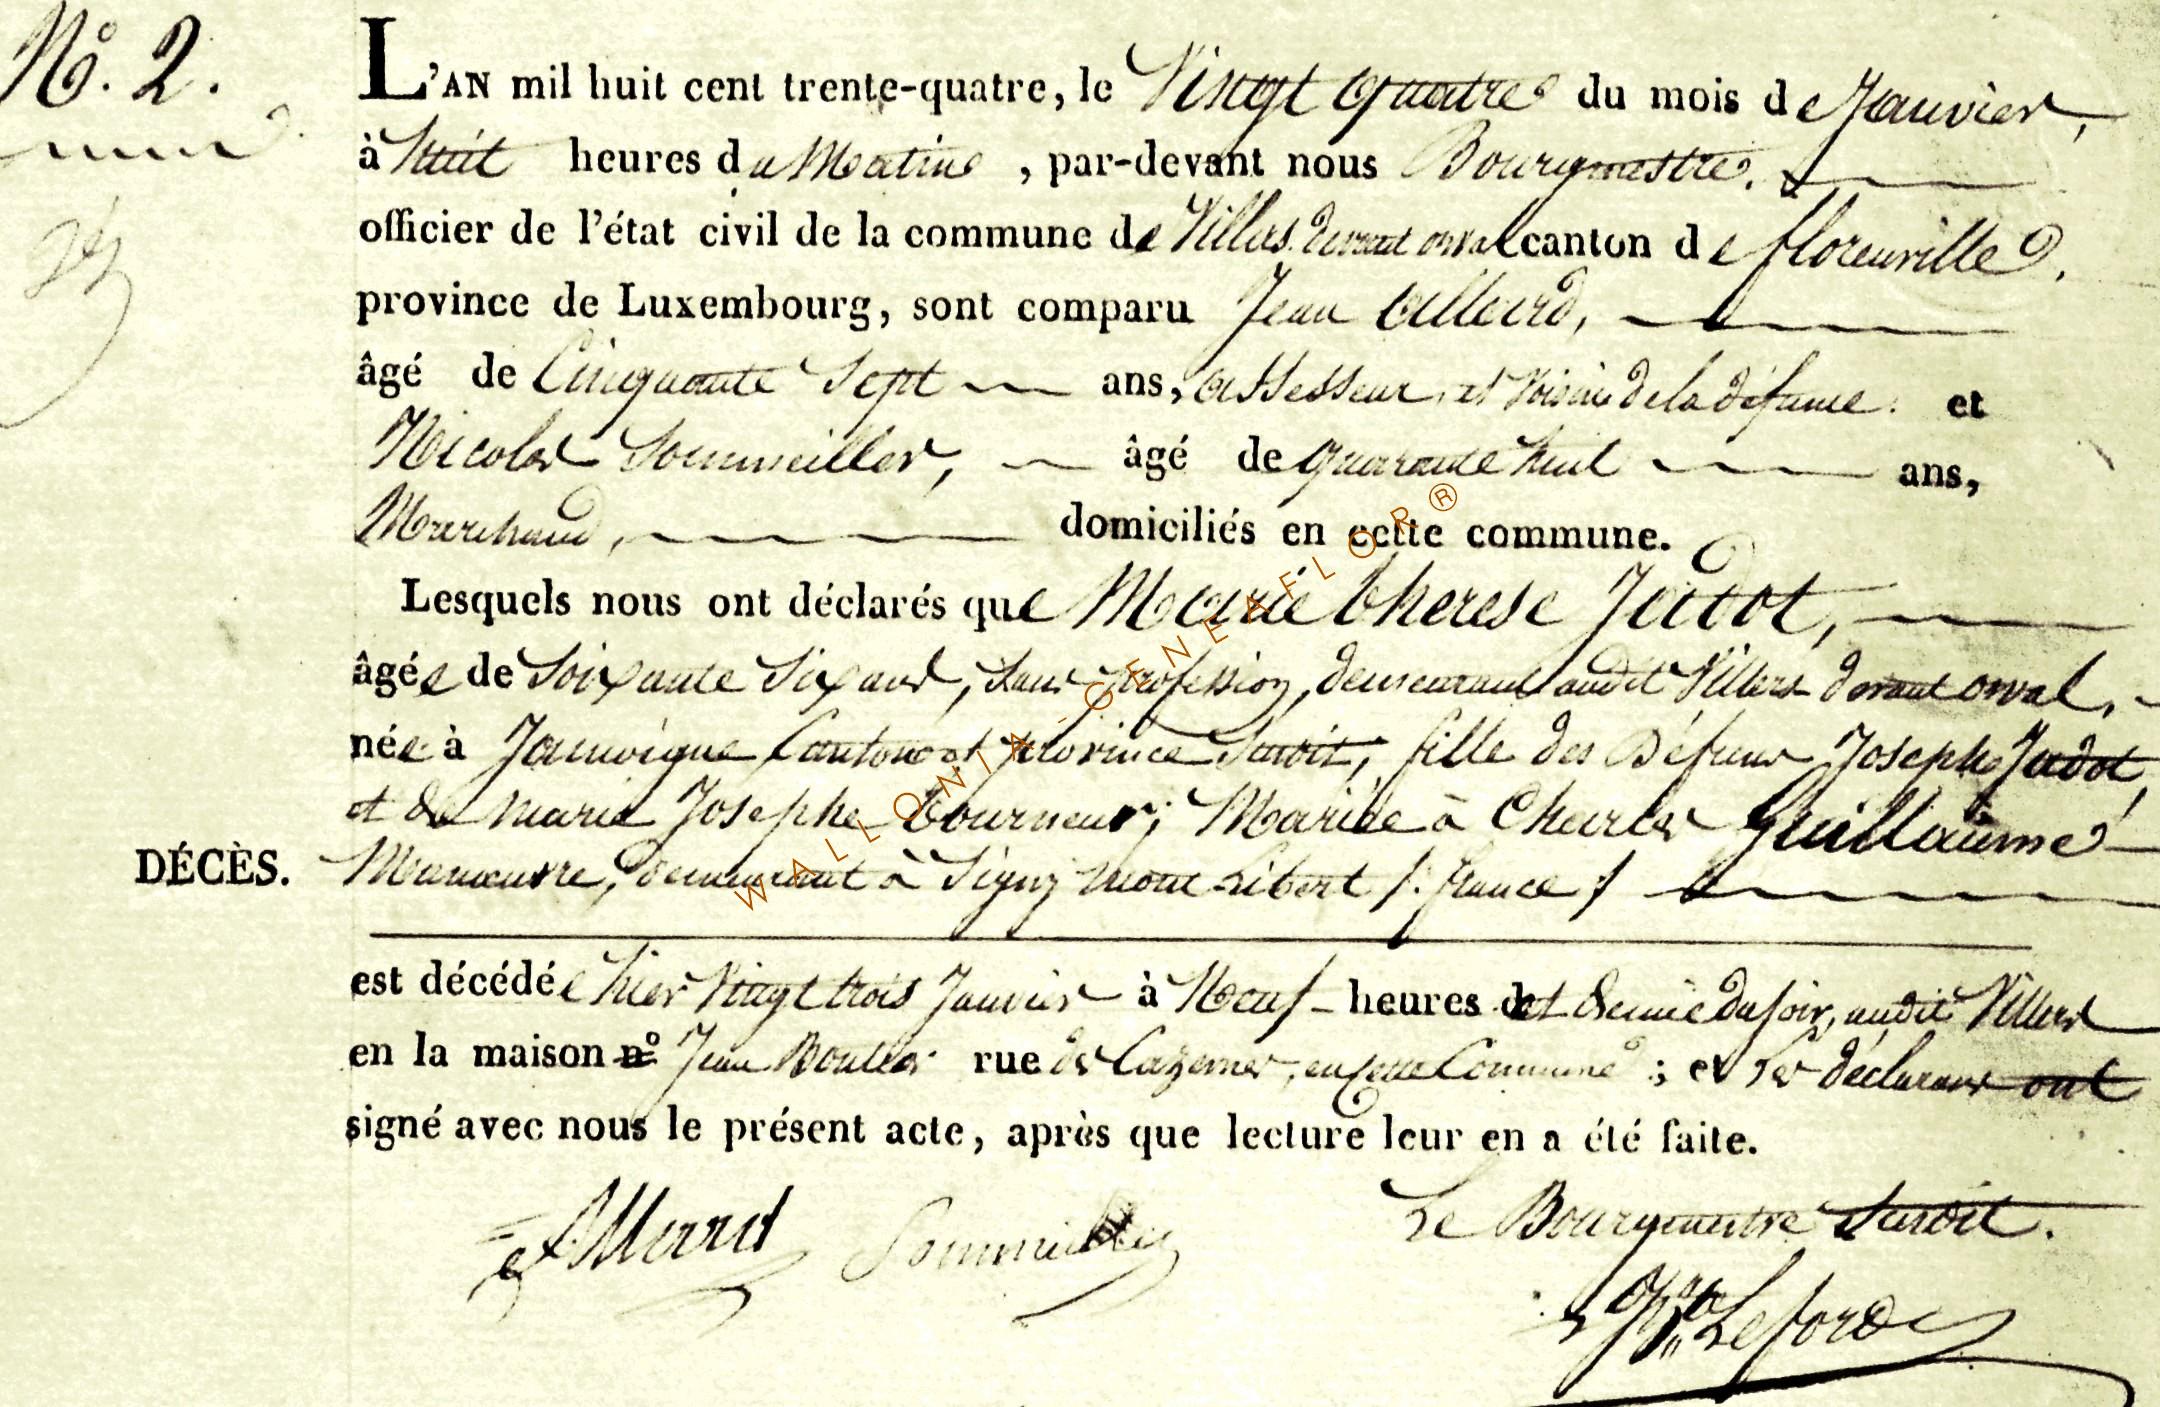 N.º 2.
L'AN mil huit cent trente-quatre, le Vingt quatre du mois de Janvier,
à huit heures du Matin, par-devant nous Bourgmestre.
officier de l'état civil de la commune de Villers devant orval canton de florenville,
province de Luxembourg, sont comparu Jean Allard,
âgé de Cinquante Sept ans, assesseur et Voisin de la défunte. et
Nicolas Sommeiller, âgé de quarante huit ans,
Marchand, domiciliés en cette commune.
Lesquels nous ont déclarés que Marie therese Jadot,
âgée de Soixante Six ans, sans profession, demeurant audit Villers devant orval,
née à Jamoigne Canton et province Susdit, fille des Défunts Joseph Jadot,
et de marie Josephe tourneur; Mariée à Charles Guillaume
DÉCÈS. Manœuvre, demeurant à Signy mont Libert /: france /
est décédée hier Vingt trois Janvier à Neuf heures et demie du soir, audit Villers
en la maison nº Jean rue des Cazernes, en cette Commune; et Les déclarans ont
signé avec nous le présent acte, après que lecture leur en a été faite.
Sommeiller Le Bourgmestre Susdit.
WALLONIA-GENEAFLOR®